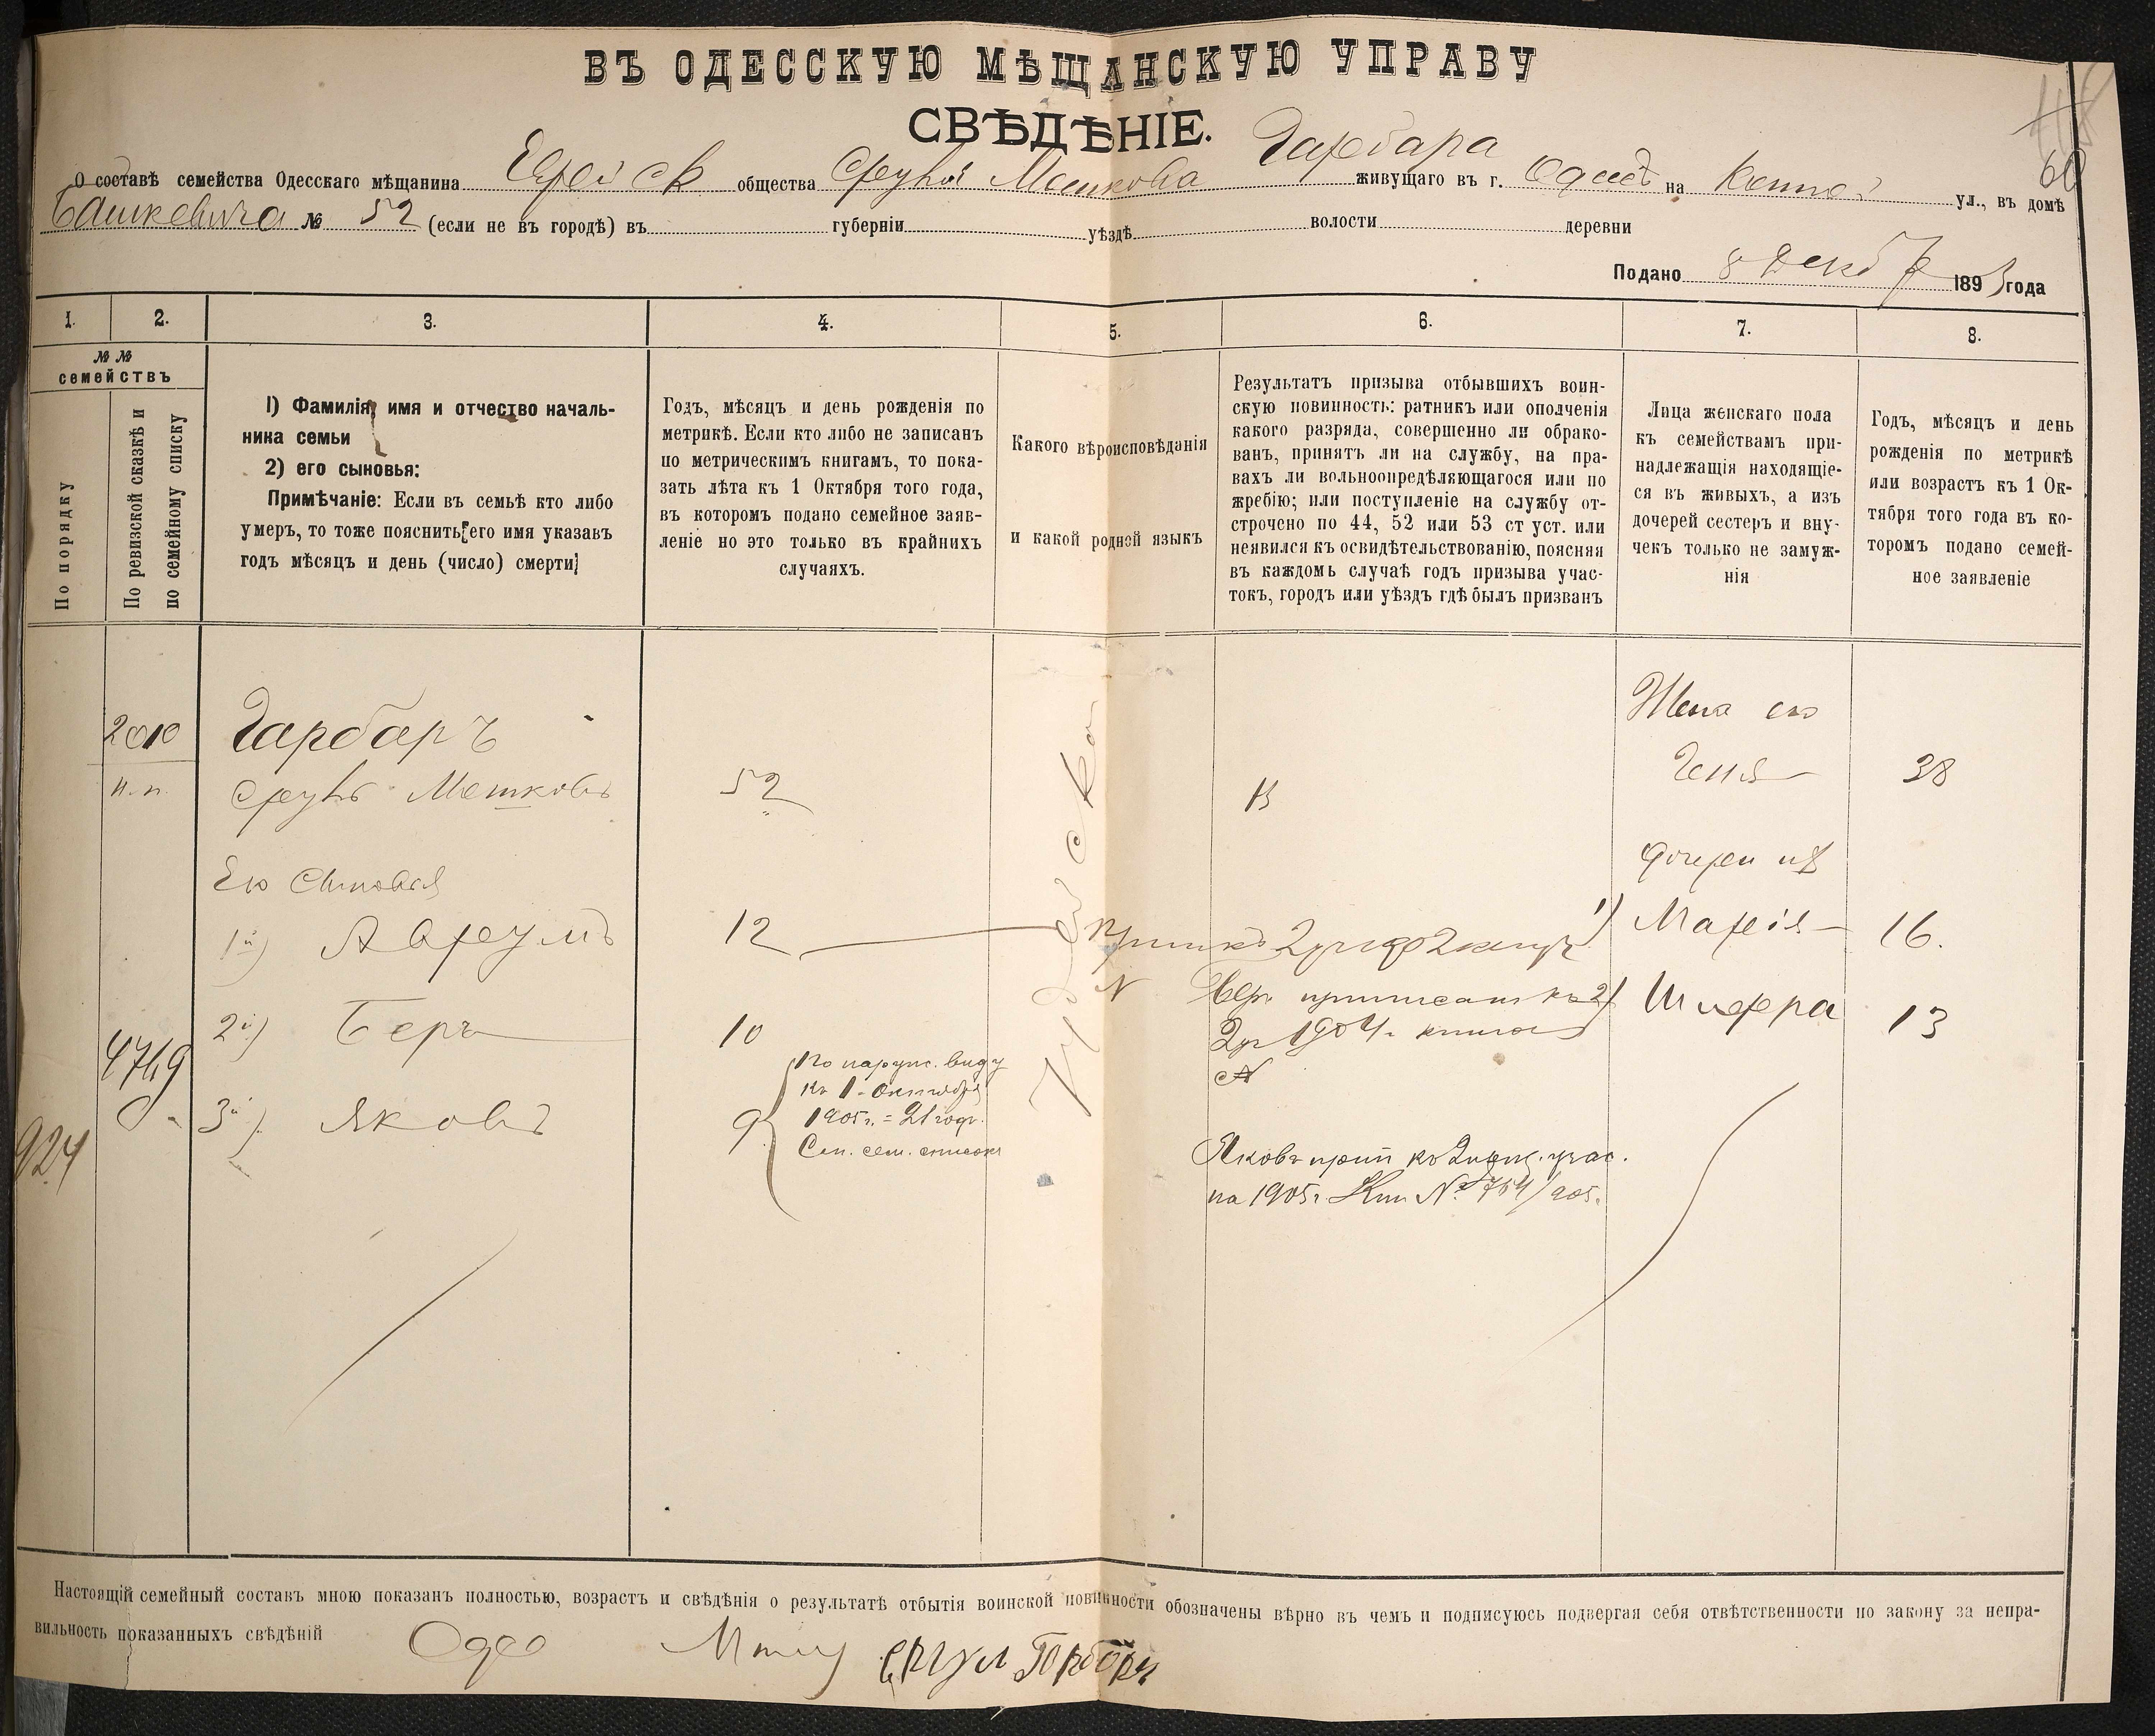 ВЪ ОДЕССКУЮ МѢЩАНСКУЮ УПРАВУ
СВѢДѢНІЕ.
Гарбара
О составѣ семейства Одесскаго мѣщанина Еврейск общества Сруля Мошкова живущаго въ г. Одессѣ на ул., въ домѣ
60
№ 52 (если не въ городѣ) въ губерніи уѣздѣ волости деревни
Подано 8 Декаб 1893 года
1. 2. 3. 4. 5. 6. 7. 8.
№ № семействъ
По порядку
По ревизской сказкѣ и по семейному списку
1) Фамилія, имя и отчество началь-
ника семьи
2) его сыновья:
Примѣчаніе: Если въ семьѣ кто либо
умеръ, то тоже пояснить его имя указавъ
годъ мѣсяцъ и день (число) смерти
Годъ, мѣсяцъ и день рожденія по
метрикѣ. Если кто либо не записанъ
по метрическимъ книгамъ, то пока-
зать лѣта къ 1 Октября того года,
въ которомъ подано семейное заяв-
леніе но это только въ крайнихъ
случаяхъ.
Какого вѣроисповѣданія
и какой родной языкъ
Результатъ призыва отбывшихъ воин-
скую повинность: ратникъ или ополченія
какого разряда, совершенно ли обрако-
ванъ, принятъ ли на службу, на пра-
вахъ ли вольноопредѣляющагося или по
жребію; или поступленіе на службу от-
строчено по 44, 52 или 53 ст уст. или
неявился къ освидѣтельствованію, поясняя
въ каждомь случаѣ годъ призыва учас-
токъ, городъ или уѣздъ гдѣ былъ призванъ
Лица женскаго пола
къ семействамъ при-
надлежащія находящіе-
ся въ живыхъ, а изъ
дочерей сестеръ и вну-
чекъ только не замуж-
нія
Годъ, мѣсяцъ и день
рожденія по метрикѣ
или возрастъ къ 1 Ок-
тября того года въ ко-
торомъ подано семей-
ное заявленіе
2010
н. п.
Гарбаръ
Сруль Мошковъ 52
Жена его
Геня 38
Его сыновья
дочери ихъ
1й) Аврумъ 12
1) Марія 16.
2й) Беръ 10
Беръ приписанъ къ
2 уч 1904 г. книга
№
2) Шифра 13
4749
924
3й) Яковъ 9
По наруж. виду
къ 1 Октября
1905 г. = 21 годъ.
Сем. списокъ
Іудейское
Яковъ прип къ 2 приз. учас.
на 1905 г. Кн. № 754/905 г.
Настоящій семейный составъ мною показанъ полностью, возрастъ и свѣдѣнія о результатѣ отбытія воинской повинности обозначены вѣрно въ чемъ и подписуюсь подвергая себя отвѣтственности по закону за непра-
вильность показанныхъ свѣдѣній